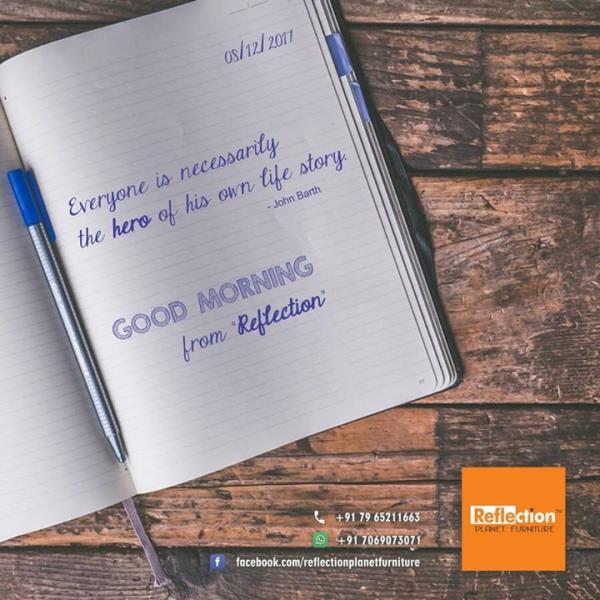 08/12/2017
Everyone is necessarily
the hero of his own life story.
- John Barth
GOOD MORNING
from "Reflection"
+91 79 65211663
+91 7069073071
f facebook.com/reflectionplanetfurniture
Reflection™
PLANET FURNITURE